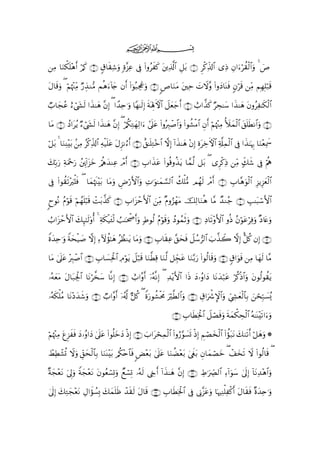 بِسْمِ ٱللَّهِ ٱلرَّحْمَٰنِ ٱلرَّحِيمِ
صٓ ۚ وَٱلْقُرْءَانِ ذِى ٱلذِّكْرِ ﴿١﴾ بَلِ ٱلَّذِينَ كَفَرُوا۟ فِى عِزَّةٍ وَشِقَاقٍ ﴿٢﴾ كَمْ أَهْلَكْنَا مِن
قَبْلِهِم مِّن قَرْنٍ فَنَادَوا۟ وَّلَاتَ حِينَ مَنَاصٍ ﴿٣﴾ وَعَجِبُوٓا۟ أَن جَآءَهُم مُّنذِرٌ مِّنْهُمْ ۖ وَقَالَ
ٱلْكَٰفِرُونَ هَٰذَا سَٰحِرٌ كَذَّابٌ ﴿٤﴾ أَجَعَلَ ٱلْءَالِهَةَ إِلَٰهًا وَٰحِدًا ۖ إِنَّ هَٰذَا لَشَىْءٌ عُجَابٌ
﴿٥﴾ وَٱنطَلَقَ ٱلْمَلَأُ مِنْهُمْ أَنِ ٱمْشُوا۟ وَٱصْبِرُوا۟ عَلَىٰٓ ءَالِهَتِكُمْ ۖ إِنَّ هَٰذَا لَشَىْءٌ يُرَادُ ﴿٦﴾ مَا
سَمِعْنَا بِهَٰذَا فِى ٱلْمِلَّةِ ٱلْءَاخِرَةِ إِنْ هَٰذَآ إِلَّا ٱخْتِلَٰقٌ ﴿٧﴾ أَءُنزِلَ عَلَيْهِ ٱلذِّكْرُ مِنۢ بَيْنِنَا ۚ بَلْ
هُمْ فِى شَكٍّ مِّن ذِكْرِى ۖ بَل لَّمَّا يَذُوقُوا۟ عَذَابِ ﴿٨﴾ أَمْ عِندَهُمْ خَزَآئِنُ رَحْمَةِ رَبِّكَ
ٱلْعَزِيزِ ٱلْوَهَّابِ ﴿٩﴾ أَمْ لَهُم مُّلْكُ ٱلسَّمَٰوَٰتِ وَٱلْأَرْضِ وَمَا بَيْنَهُمَا ۖ فَلْيَرْتَقُوا۟ فِى
ٱلْأَسْبَٰبِ ﴿١٠﴾ جُندٌ مَّا هُنَالِكَ مَهْزُومٌ مِّنَ ٱلْأَحْزَابِ ﴿١١﴾ كَذَّبَتْ قَبْلَهُمْ قَوْمُ نُوحٍ
وَعَادٌ وَفِرْعَوْنُ ذُو ٱلْأَوْتَادِ ﴿١٢﴾ وَثَمُودُ وَقَوْمُ لُوطٍ وَأَصْحَٰبُ لْـَٔيْكَةِ ۚ أُو۟لَٰٓئِكَ ٱلْأَحْزَابُ
﴿١٣﴾ إِن كُلٌّ إِلَّا كَذَّبَ ٱلرُّسُلَ فَحَقَّ عِقَابِ ﴿١٤﴾ وَمَا يَنظُرُ هَٰٓؤُلَآءِ إِلَّا صَيْحَةً وَٰحِدَةً
مَّا لَهَا مِن فَوَاقٍ ﴿١٥﴾ وَقَالُوا۟ رَبَّنَا عَجِّل لَّنَا قِطَّنَا قَبْلَ يَوْمِ ٱلْحِسَابِ ﴿١٦﴾ ٱصْبِرْ عَلَىٰ مَا
يَقُولُونَ وَٱذْكُرْ عَبْدَنَا دَاوُۥدَ ذَا ٱلْأَيْدِ ۖ إِنَّهُۥٓ أَوَّابٌ ﴿١٧﴾ إِنَّا سَخَّرْنَا ٱلْجِبَالَ مَعَهُۥ
يُسَبِّحْنَ بِٱلْعَشِىِّ وَٱلْإِشْرَاقِ ﴿١٨﴾ وَٱلطَّيْرَ مَحْشُورَةً ۖ كُلٌّ لَّهُۥٓ أَوَّابٌ ﴿١٩﴾ وَشَدَدْنَا مُلْكَهُۥ
وَءَاتَيْنَٰهُ ٱلْحِكْمَةَ وَفَصْلَ ٱلْخِطَابِ ﴿٢٠﴾
۞ وَهَلْ أَتَىٰكَ نَبَؤُا۟ ٱلْخَصْمِ إِذْ تَسَوَّرُوا۟ ٱلْمِحْرَابَ ﴿٢١﴾ إِذْ دَخَلُوا۟ عَلَىٰ دَاوُۥدَ فَفَزِعَ مِنْهُمْ
ۖ قَالُوا۟ لَا تَخَفْ ۖ خَصْمَانِ بَغَىٰ بَعْضُنَا عَلَىٰ بَعْضٍ فَٱحْكُم بَيْنَنَا بِٱلْحَقِّ وَلَا تُشْطِطْ
وَٱهْدِنَآ إِلَىٰ سَوَآءِ ٱلصِّرَٰطِ ﴿٢٢﴾ إِنَّ هَٰذَآ أَخِى لَهُۥ تِسْعٌ وَتِسْعُونَ نَعْجَةً وَلِىَ نَعْجَةٌ
وَٰحِدَةٌ فَقَالَ أَكْفِلْنِيهَا وَعَزَّنِى فِى ٱلْخِطَابِ ﴿٢٣﴾ قَالَ لَقَدْ ظَلَمَكَ بِسُؤَالِ نَعْجَتِكَ إِلَىٰ